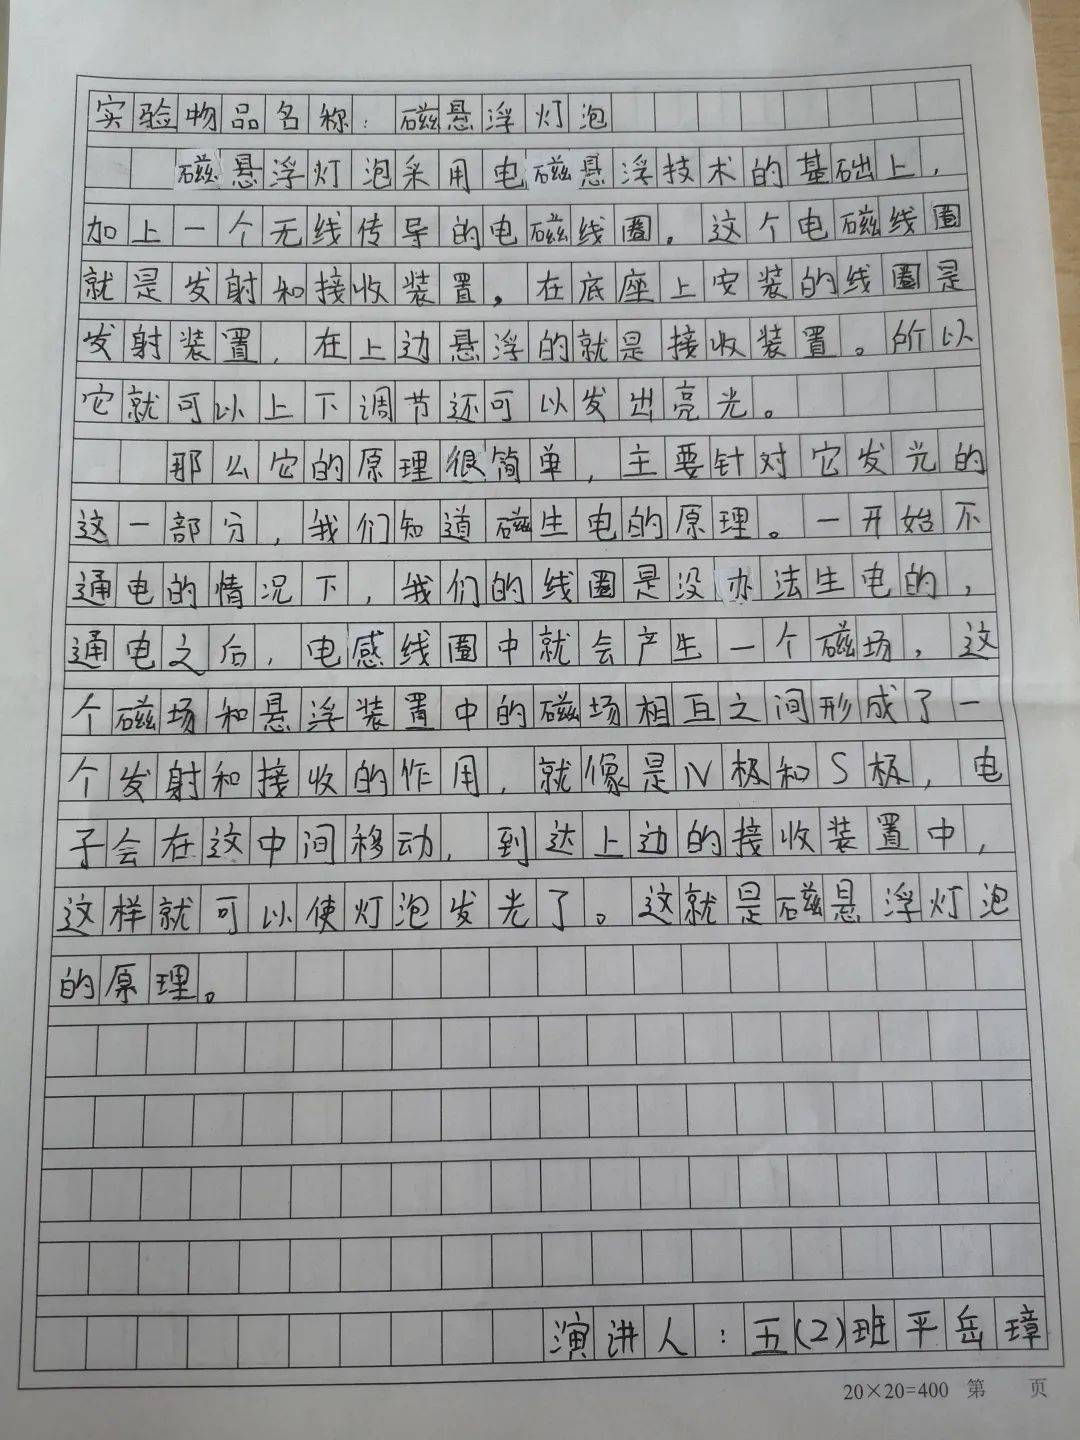 实验物品名称：磁悬浮灯泡
磁悬浮灯泡采用电磁悬浮技术的基础上，
加上一个无线传导的电磁线圈。这个电磁线圈
就是发射和接收装置，在底座上安装的线圈是
发射装置，在上边悬浮的就是接收装置。所以
它就可以上下调节还可以发出亮光。
那么它的原理很简单，主要针对它发光的
这一部分，我们知道磁生电的原理。一开始不
通电的情况下，我们的线圈是没办法生电的，
通电之后，电感线圈中就会产生一个磁场，这
个磁场和悬浮装置中的磁场相互之间形成了一
个发射和接收的作用，就像是N极和S极，电
子会在这中间移动，到达上边的接收装置中，
这样就可以使灯泡发光了。这就是磁悬浮灯泡
的原理。
演讲人：五(2)班平岳璋
20×20=400 第 页